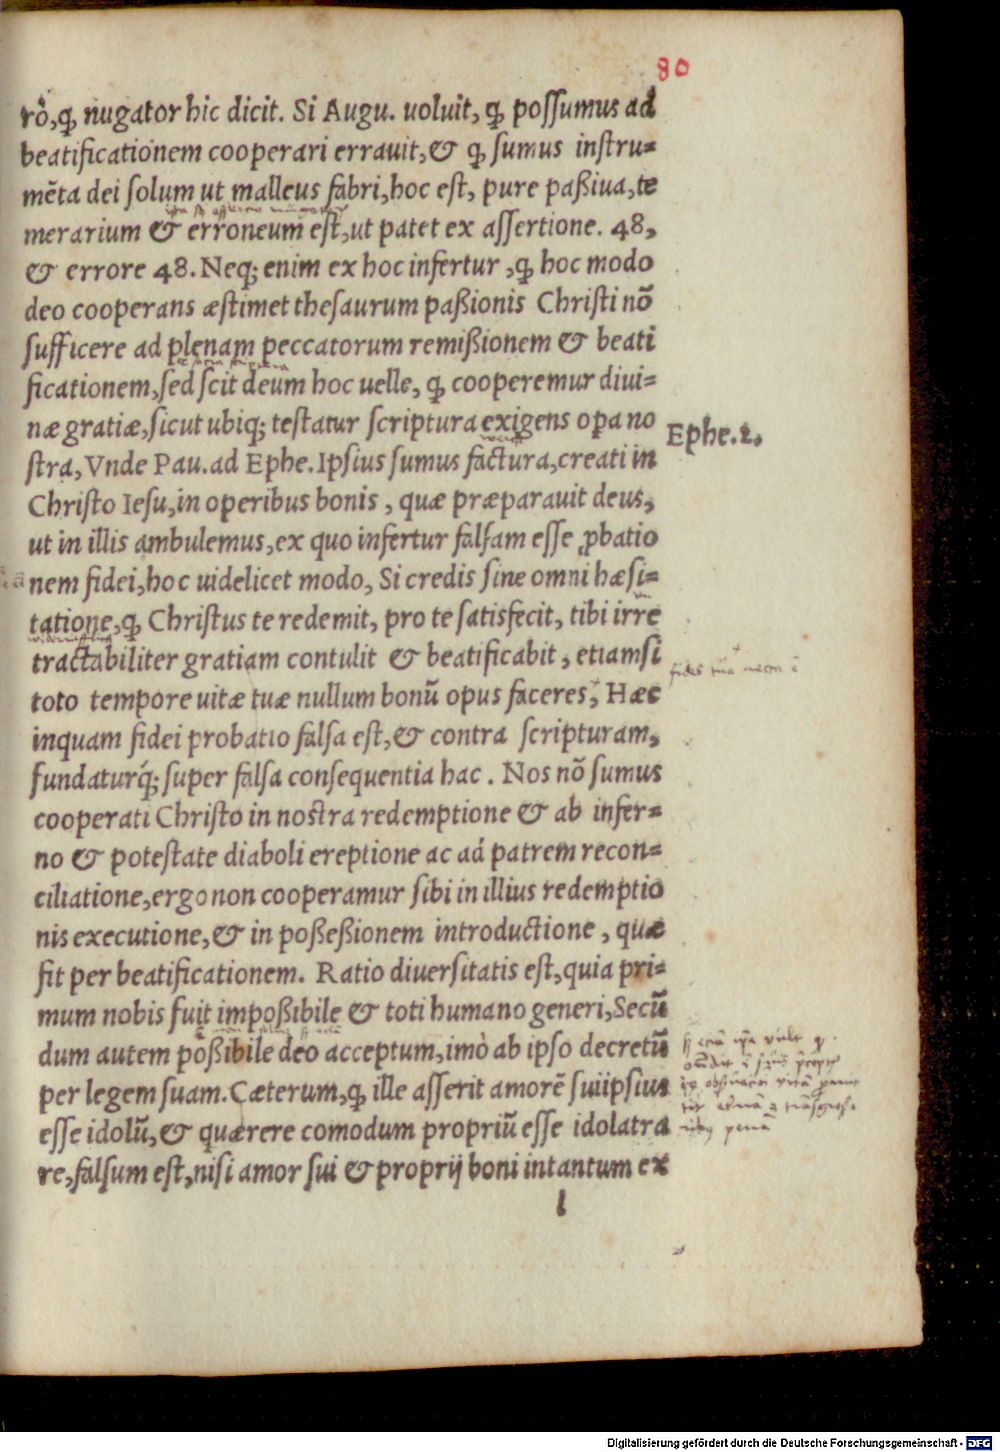 80
rō,ꝙ nugator hic dicit. Si Augu. uoluit, ꝙ poſſumus ad
beatificationem cooperari errauit,& ꝙ ſumus inſtru⸗
mēta dei ſolum ut malleus fabri,hoc eſt, pure paßiua,te
merarium & erroneum eſt,ut patet ex aſſertione. 48,
& errore 48. Neq; enim ex hoc infertur ,ꝙ hoc modo
deo cooperans æſtimet theſaurum paßionis Chriſti nō
ſufficere ad plenam peccatorum remißionem & beati
ficationem,ſed ſcit deum hoc uelle, ꝙ cooperemur diui⸗
næ gratiæ,ſicut ubiq; teſtatur ſcriptura exigens oꝑa no
ſtra, Vnde Pau. ad Ephe. Ipſius ſumus factura,creati in
Ephe.2,
Chriſto Ieſu,in operibus bonis , quæ præparauit deus,
ut in illis ambulemus,ex quo infertur falſam eſſe ꝓbatio
nem fidei,hoc uidelicet modo, Si credis ſine omni hæſi⸗
tatione,ꝙ Chriſtus te redemit, pro te ſatisfecit, tibi irre
tractabiliter gratiam contulit & beatificabit , etiamſi
toto tempore uitæ tuæ nullum bonū opus faceres, Hæc
inquam fidei probatio falſa eſt,& contra ſcripturam,
fundaturq́; ſuper falſa conſequentia hac . Nos nō ſumus
cooperati Chriſto in noſtra redemptione & ab infer⸗
no & poteſtate diaboli ereptione ac ad patrem recon⸗
ciliatione,ergo non cooperamur ſibi in illius redemptio
nis executione,& in poßeßionem introductione , quæ
fit per beatificationem. Ratio diuerſitatis eſt,quia pri⸗
mum nobis fuit impoßibile & toti humano generi,Secū
dum autem poßibile deo acceptum,imò ab ipſo decretū
per legem ſuam. Cæterum,ꝙ ille aſſerit amorē ſuiipſius
eſſe idolū,& quærere comodum propriū eſſe idolatra
re,falſum eſt,niſi amor ſui & proprij boni intantum ex
l
Digitalisierung gefördert durch die Deutsche Forschungsgemeinschaft - DFG